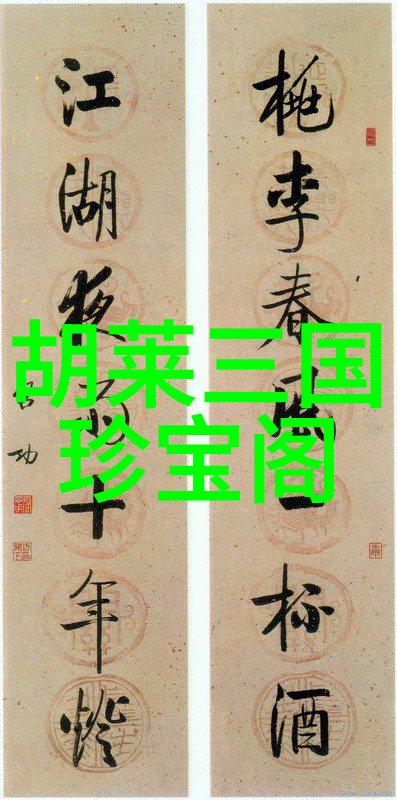 桃李春風一杯酒
江湖夜雨十年燈
启功
胡莱三国
珍宝阁